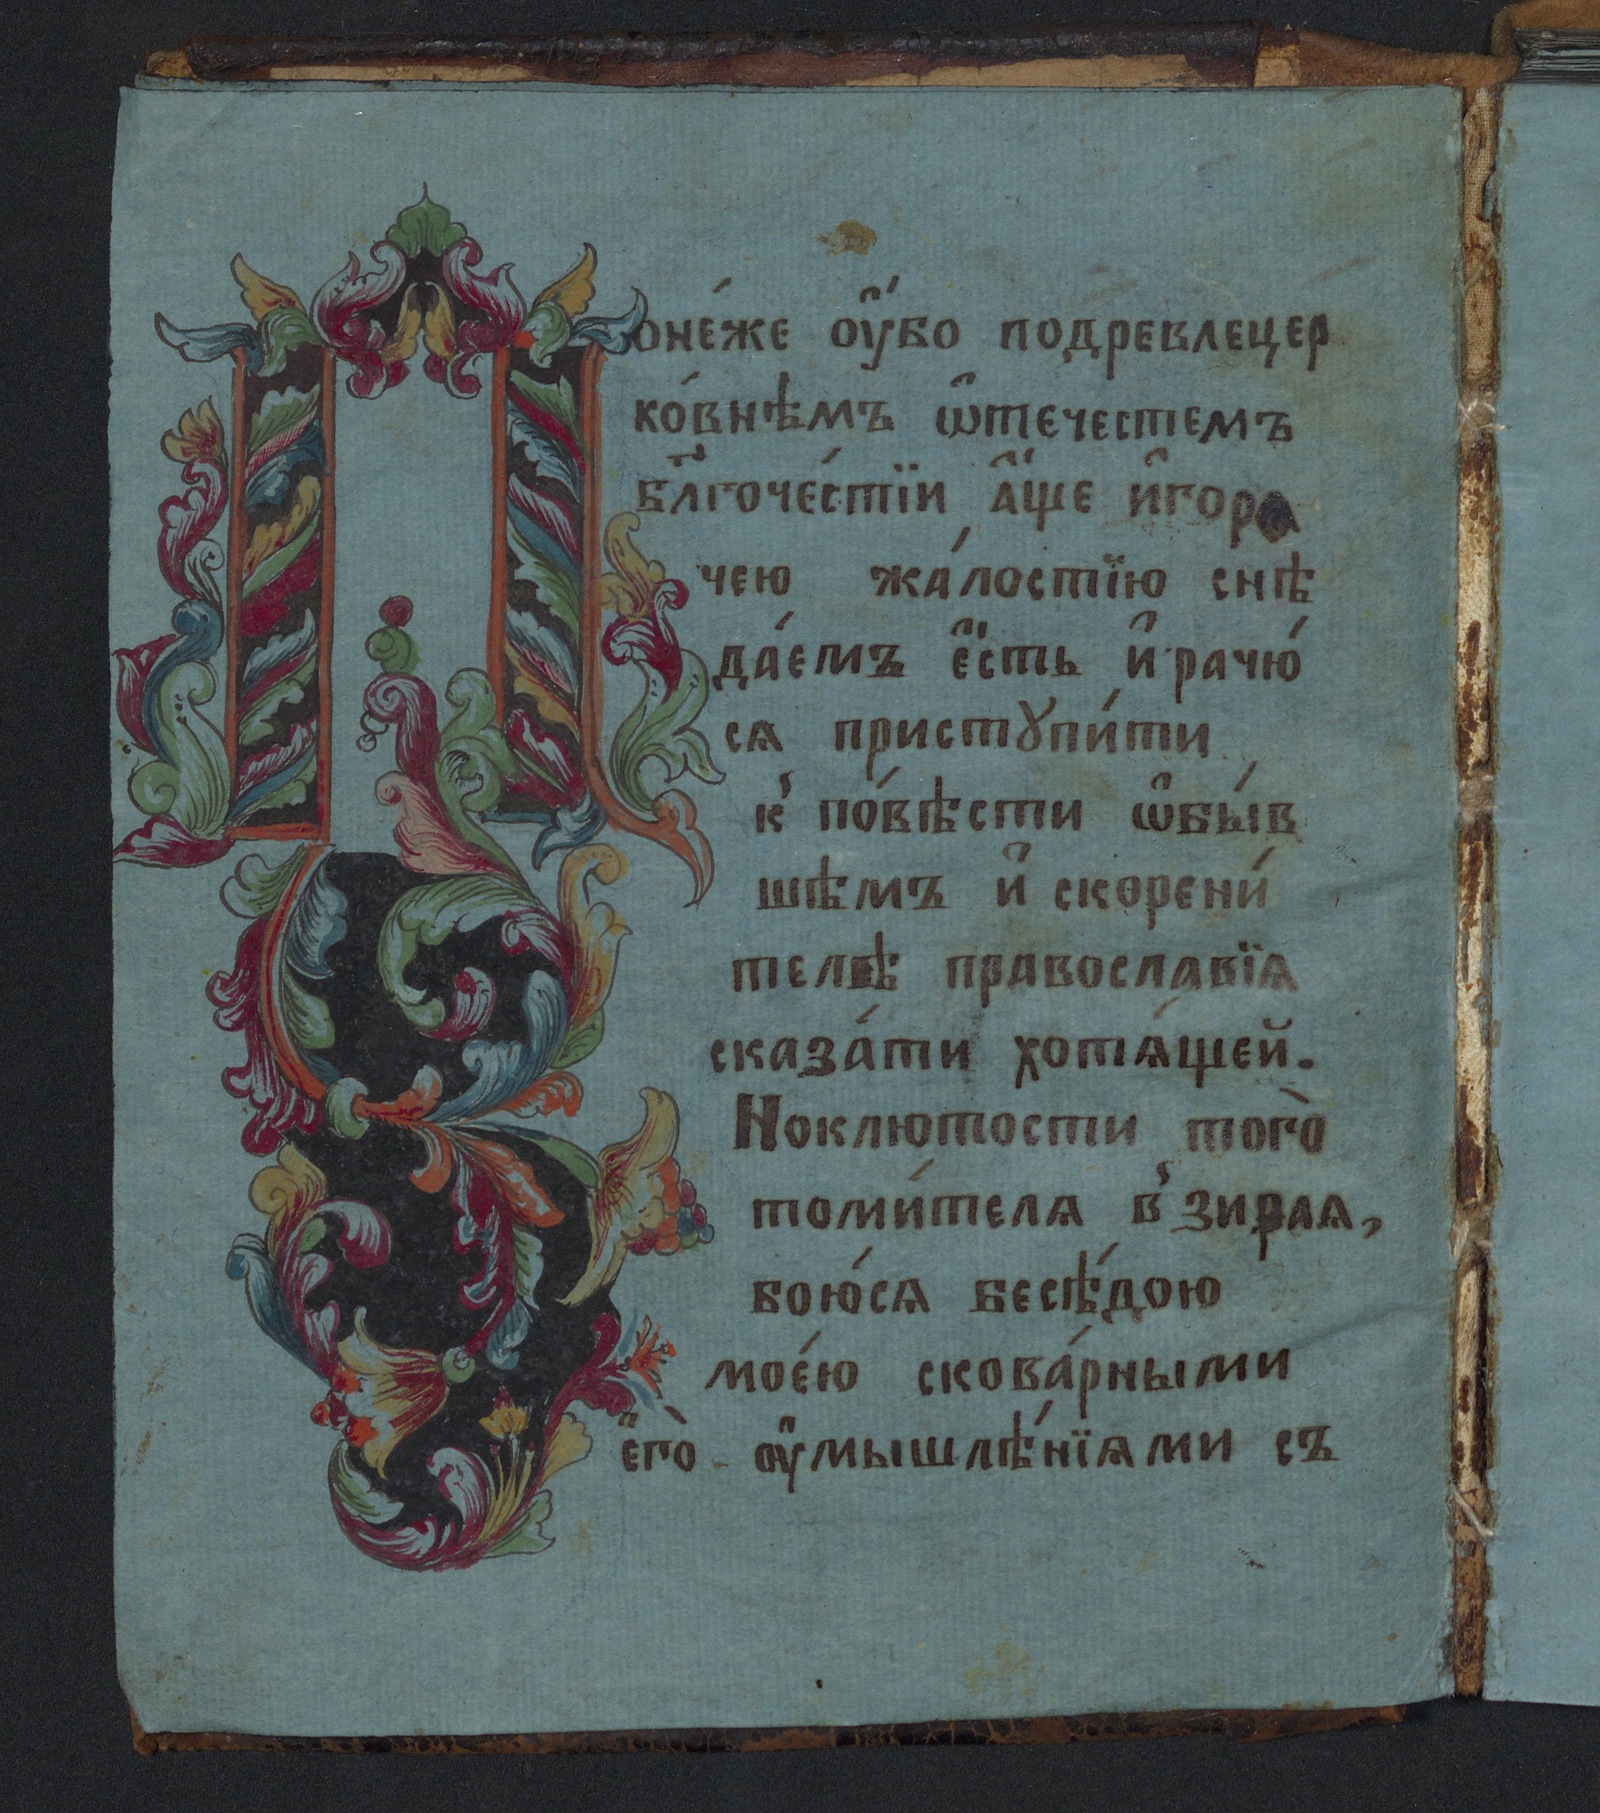 Поне́же оу҆́бо подревлецер
ко́внѣмъ ѿтечестемъ
бл҃гоче́стїи а҆́ще и҆гора
чею жа́лостїю снѣ
да́емъ є҆́сть и҆ рачю́
ся пристꙋпи́ти
к̾ по́вѣсти ѡ҆бы́в
шѣмъ и҆ скорени́
телѣ православїѧ
сказа́ти хотѧ́щей.
Ноклютости того̀
томи́телѧ в̾зираѧ,
бою́сѧ бесѣ́дою
мое́ю скова́рными
є҆го̀ оу҆мышлѣ́нїѧми съ